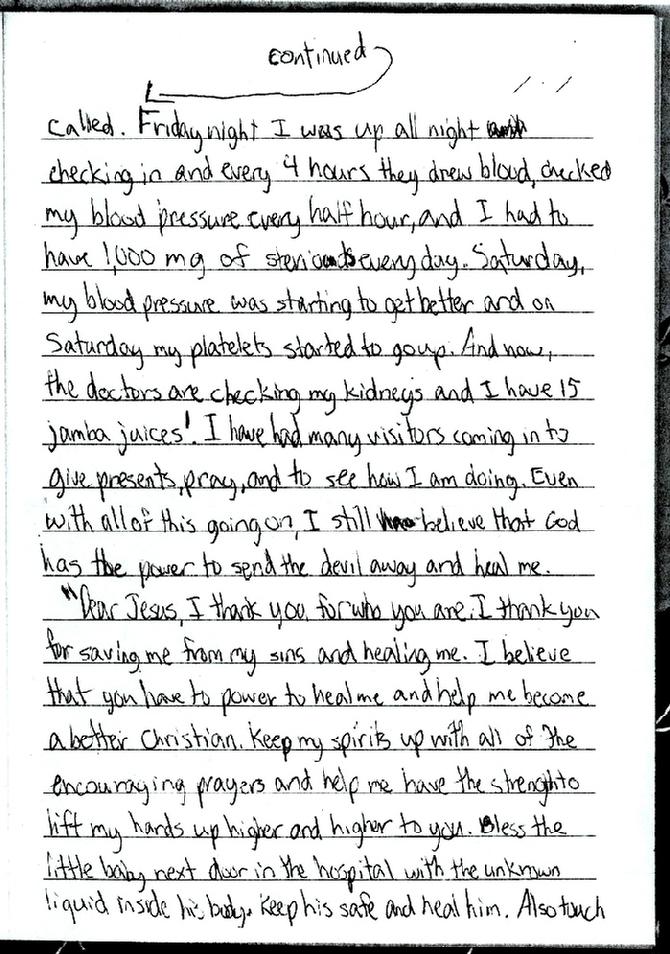 continued
called. Friday night I was up all night
checking in and every 4 hours they drew blood, checked
my blood pressure every half hour, and I had to
have 1,000 mg of everyday. Saturday,
my blood pressure was starting to get better and on
Saturday my platelets started to go up. And now,
the doctors are checking my kidneys and I have 15
jamba juices! I have had many visitors coming in to
give presents, pray, and to see how I am doing. Even
with all of this going on, I still believe that God
has the power to send the devil away and heal me.
"Dear Jesus, I thank you for who you are. I thank you
for saving me from my sins and healing me. I believe
that you have to power to heal me and help me become
a better Christian. Keep my spirits up with all of the
encouraging prayers and help me have the strenght to
lift my hands up higher and higher to you. Bless the
little baby next door in the hospital with the unknown
liquid inside his body. Keep his safe and heal him. Also touch